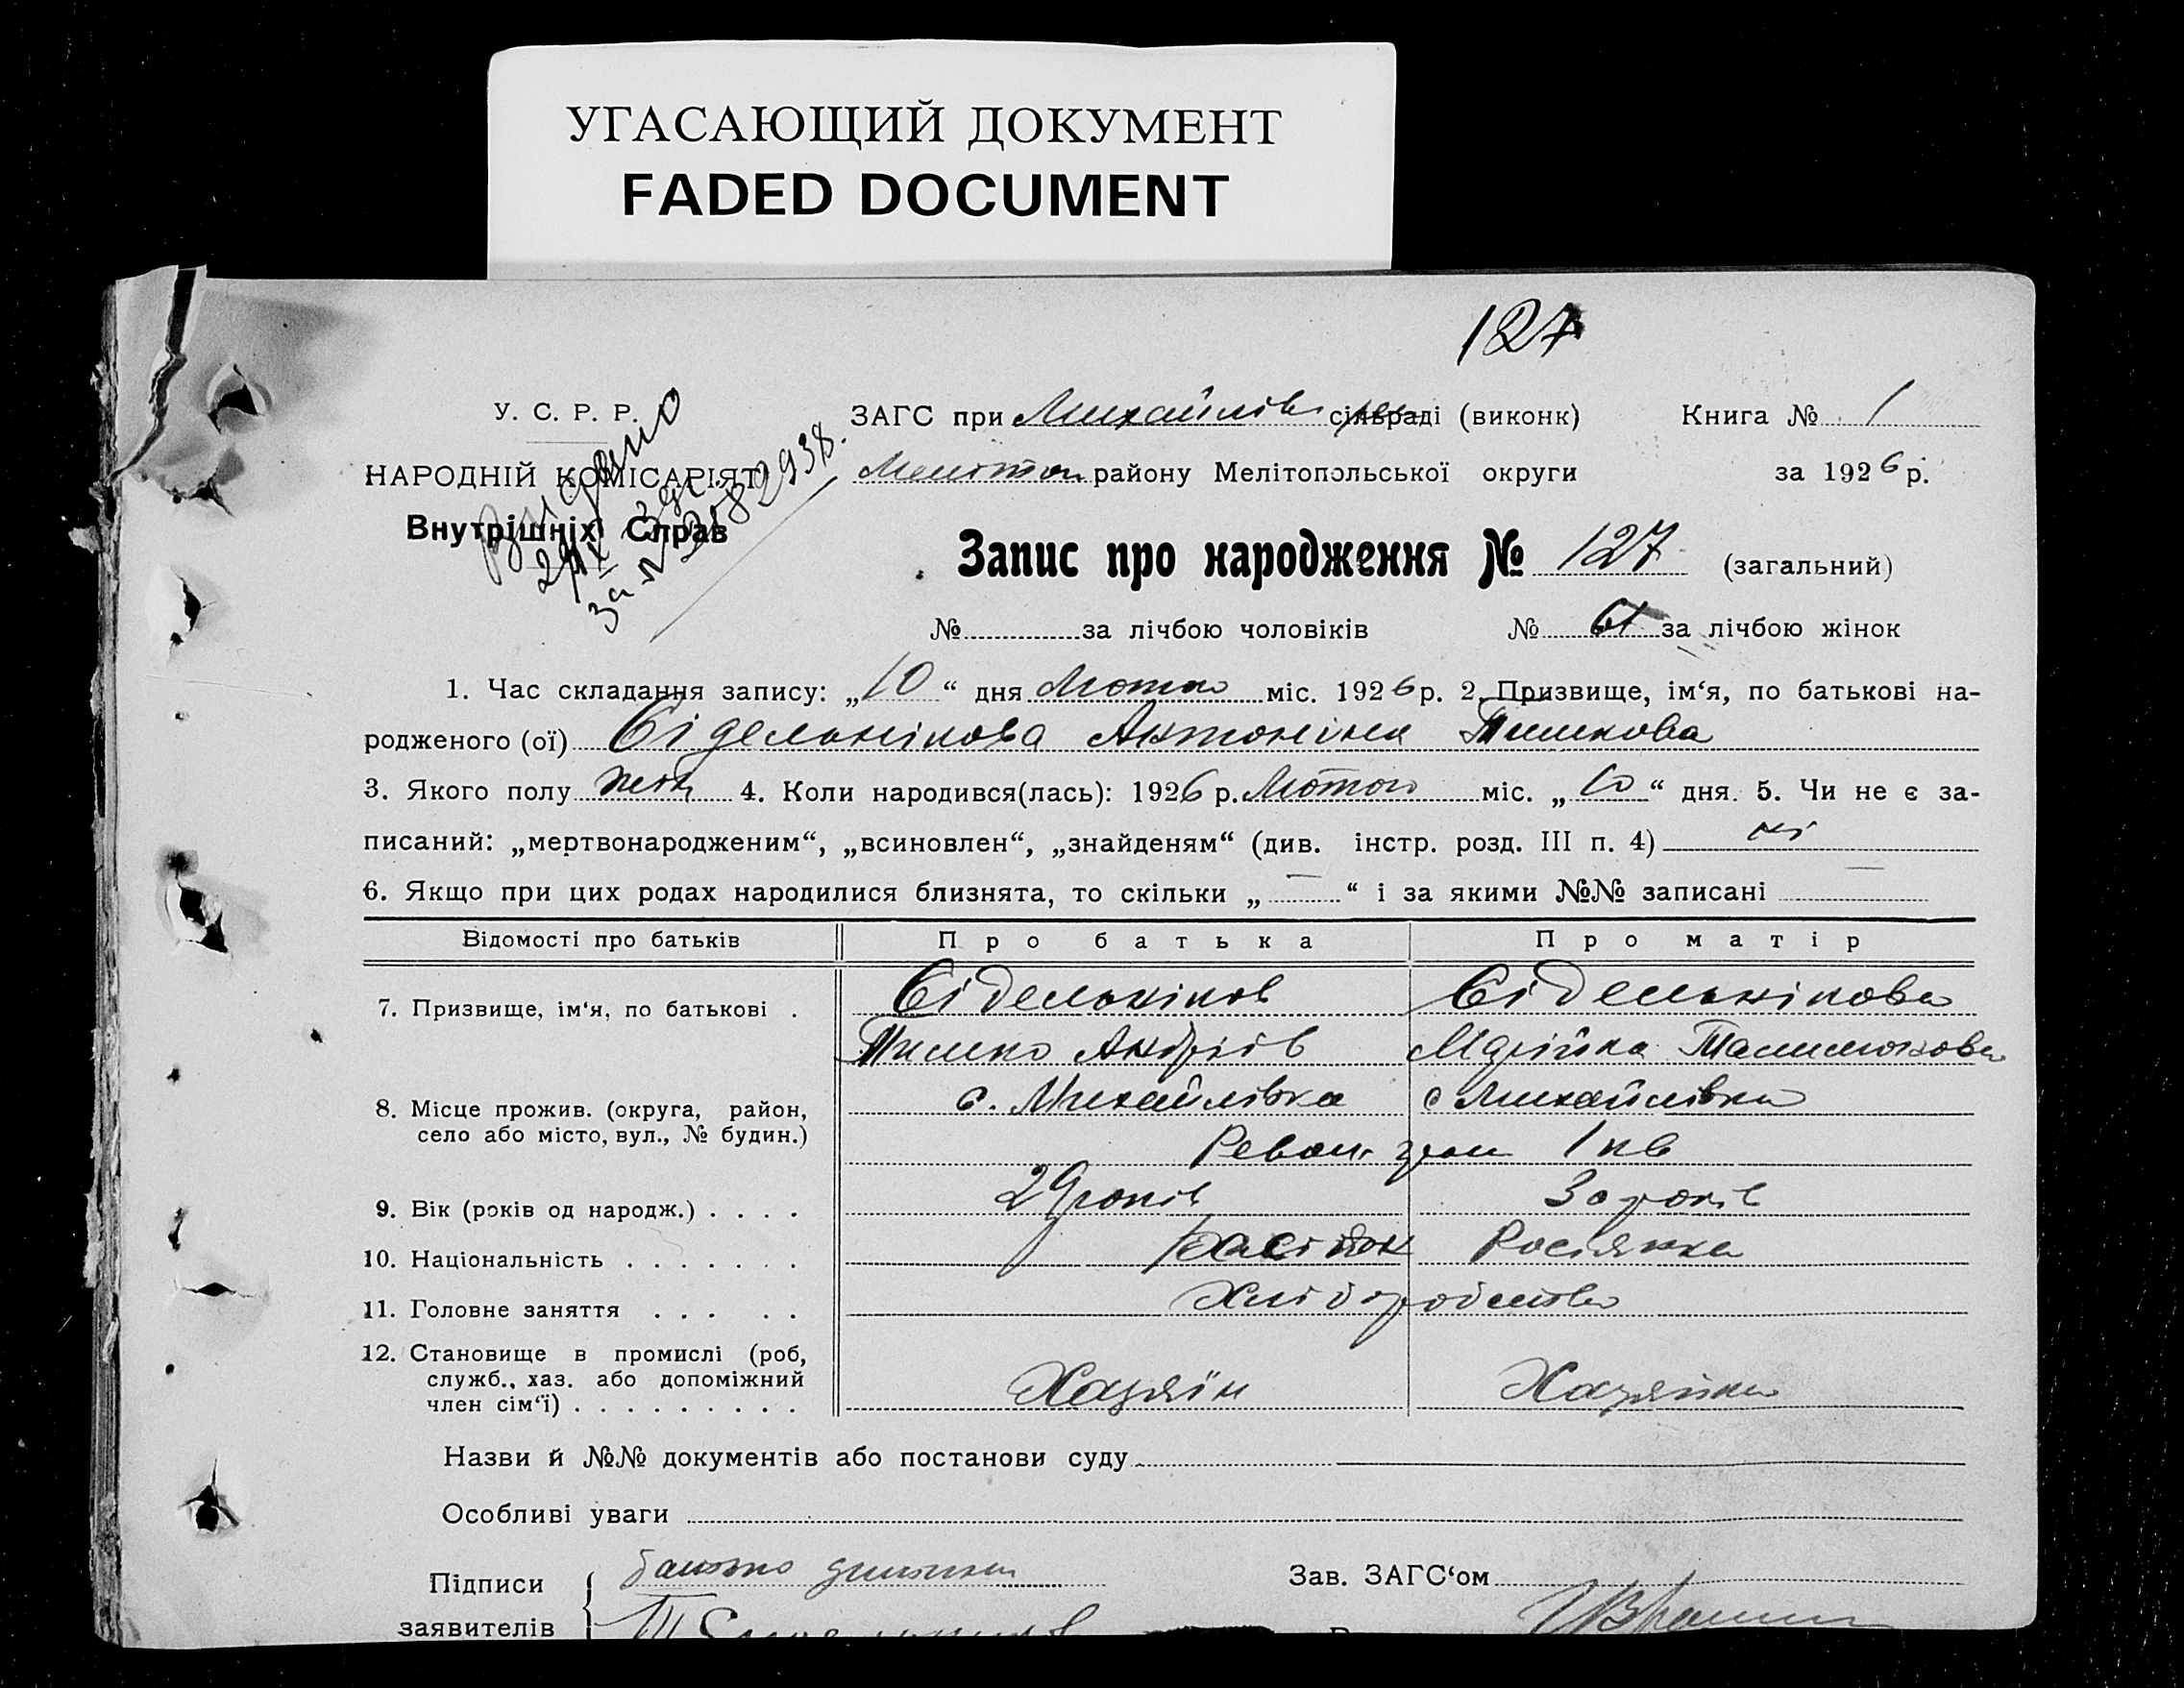 УГАСАЮЩИЙ ДОКУМЕНТ
FADED DOCUMENT
127
У. С. Р. Р.
НАРОДНІЙ КОМІСАРІЯТ
Внутрішніх Справ
Видано
ЗАГС при Михайлів сільраді (виконк) Книга № 1
Меліտոп району Мелітопольської округи за 1926 р.
Запис про народження № 127 (загальний)
№ за лічбою чоловіків № 61 за лічбою жінок
1. Час складання запису: „10“ дня Лютого міс. 1926 р. 2. Призвище, ім‘я, по батькові на-
родженого (ої) Сідельнікова Антоніна Тимкова
3. Якого полу жін 4. Коли народився(лась): 1926 р. Лютого міс. „10“ дня. 5. Чи не є за-
писаний: „мертвонародженим“, „всиновлен“, „знайденям“ (див. інстр. розд. III п. 4) ні
6. Якщо при цих родах народилися близнята, то скільки „—“ і за якими №№ записані —
Відомості про батьків Про батька Про матір
7. Призвище, ім‘я, по батькові . Сідельніков Сідельнікова
Тимко Андріїв Марійка
8. Місце прожив. (округа, район, с. Михайлівка с Михайлівка
село або місто, вул., № будин.) 1 кв
9. Вік (років од народж.) . . . . 29 років 30 років
10. Національність . . . . . . . Росіянка
11. Головне заняття . . . . . Хліборобство
12. Становище в промислі (роб,
служб., хаз. або допоміжний Хазяїн Хазяйка
член сім‘ї) . . . . . . . . .
Назви й №№ документів або постанови суду
Особливі уваги
Підписи батько дитини Зав. ЗАГС‘ом
заявителів